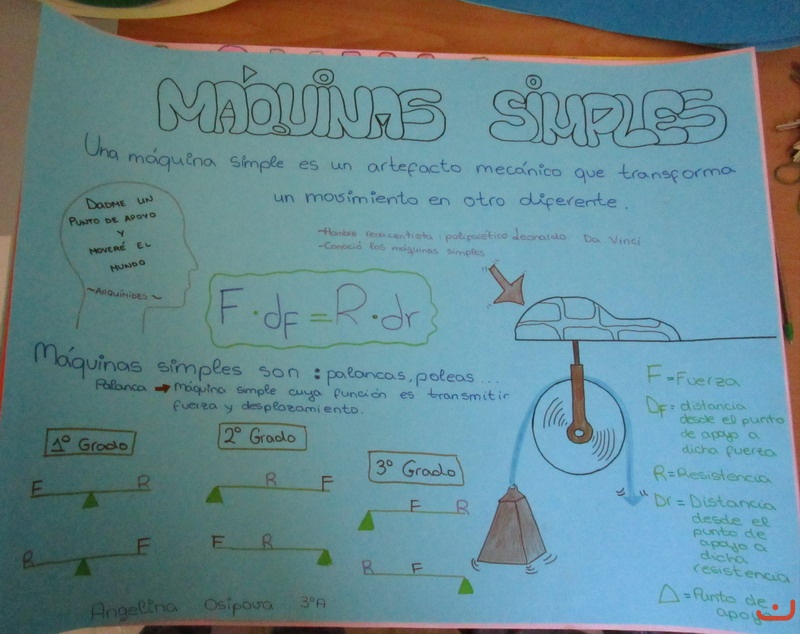 MÁQUINAS SIMPLES
Una máquina simple es un artefacto mecánico que transforma
un movimiento en otro diferente.
DADME UN
PUNTO DE APOYO
Y
MOVERÉ EL
MUNDO
~ARQUÍMIDES~
-Hombre renacentista polifacético Leonardo Da Vinci
-Conoció las máquinas simples
F · dF = R · dr
Máquinas simples son : palancas, poleas...
Palanca → Máquina simple cuya función es transmitir
fuerza y desplazamiento.
1º Grado
F R
R F
2º Grado
R F
F R
3º Grado
F R
R F
F = Fuerza
DF = distancia
desde el punto
de apoyo a
dicha fuerza
R = Resistencia
Dr = Distancia
desde el
punto de
apoyo a
dicha
resistencia
△ = Punto de
apoyo
Angelina Osipova 3ºA